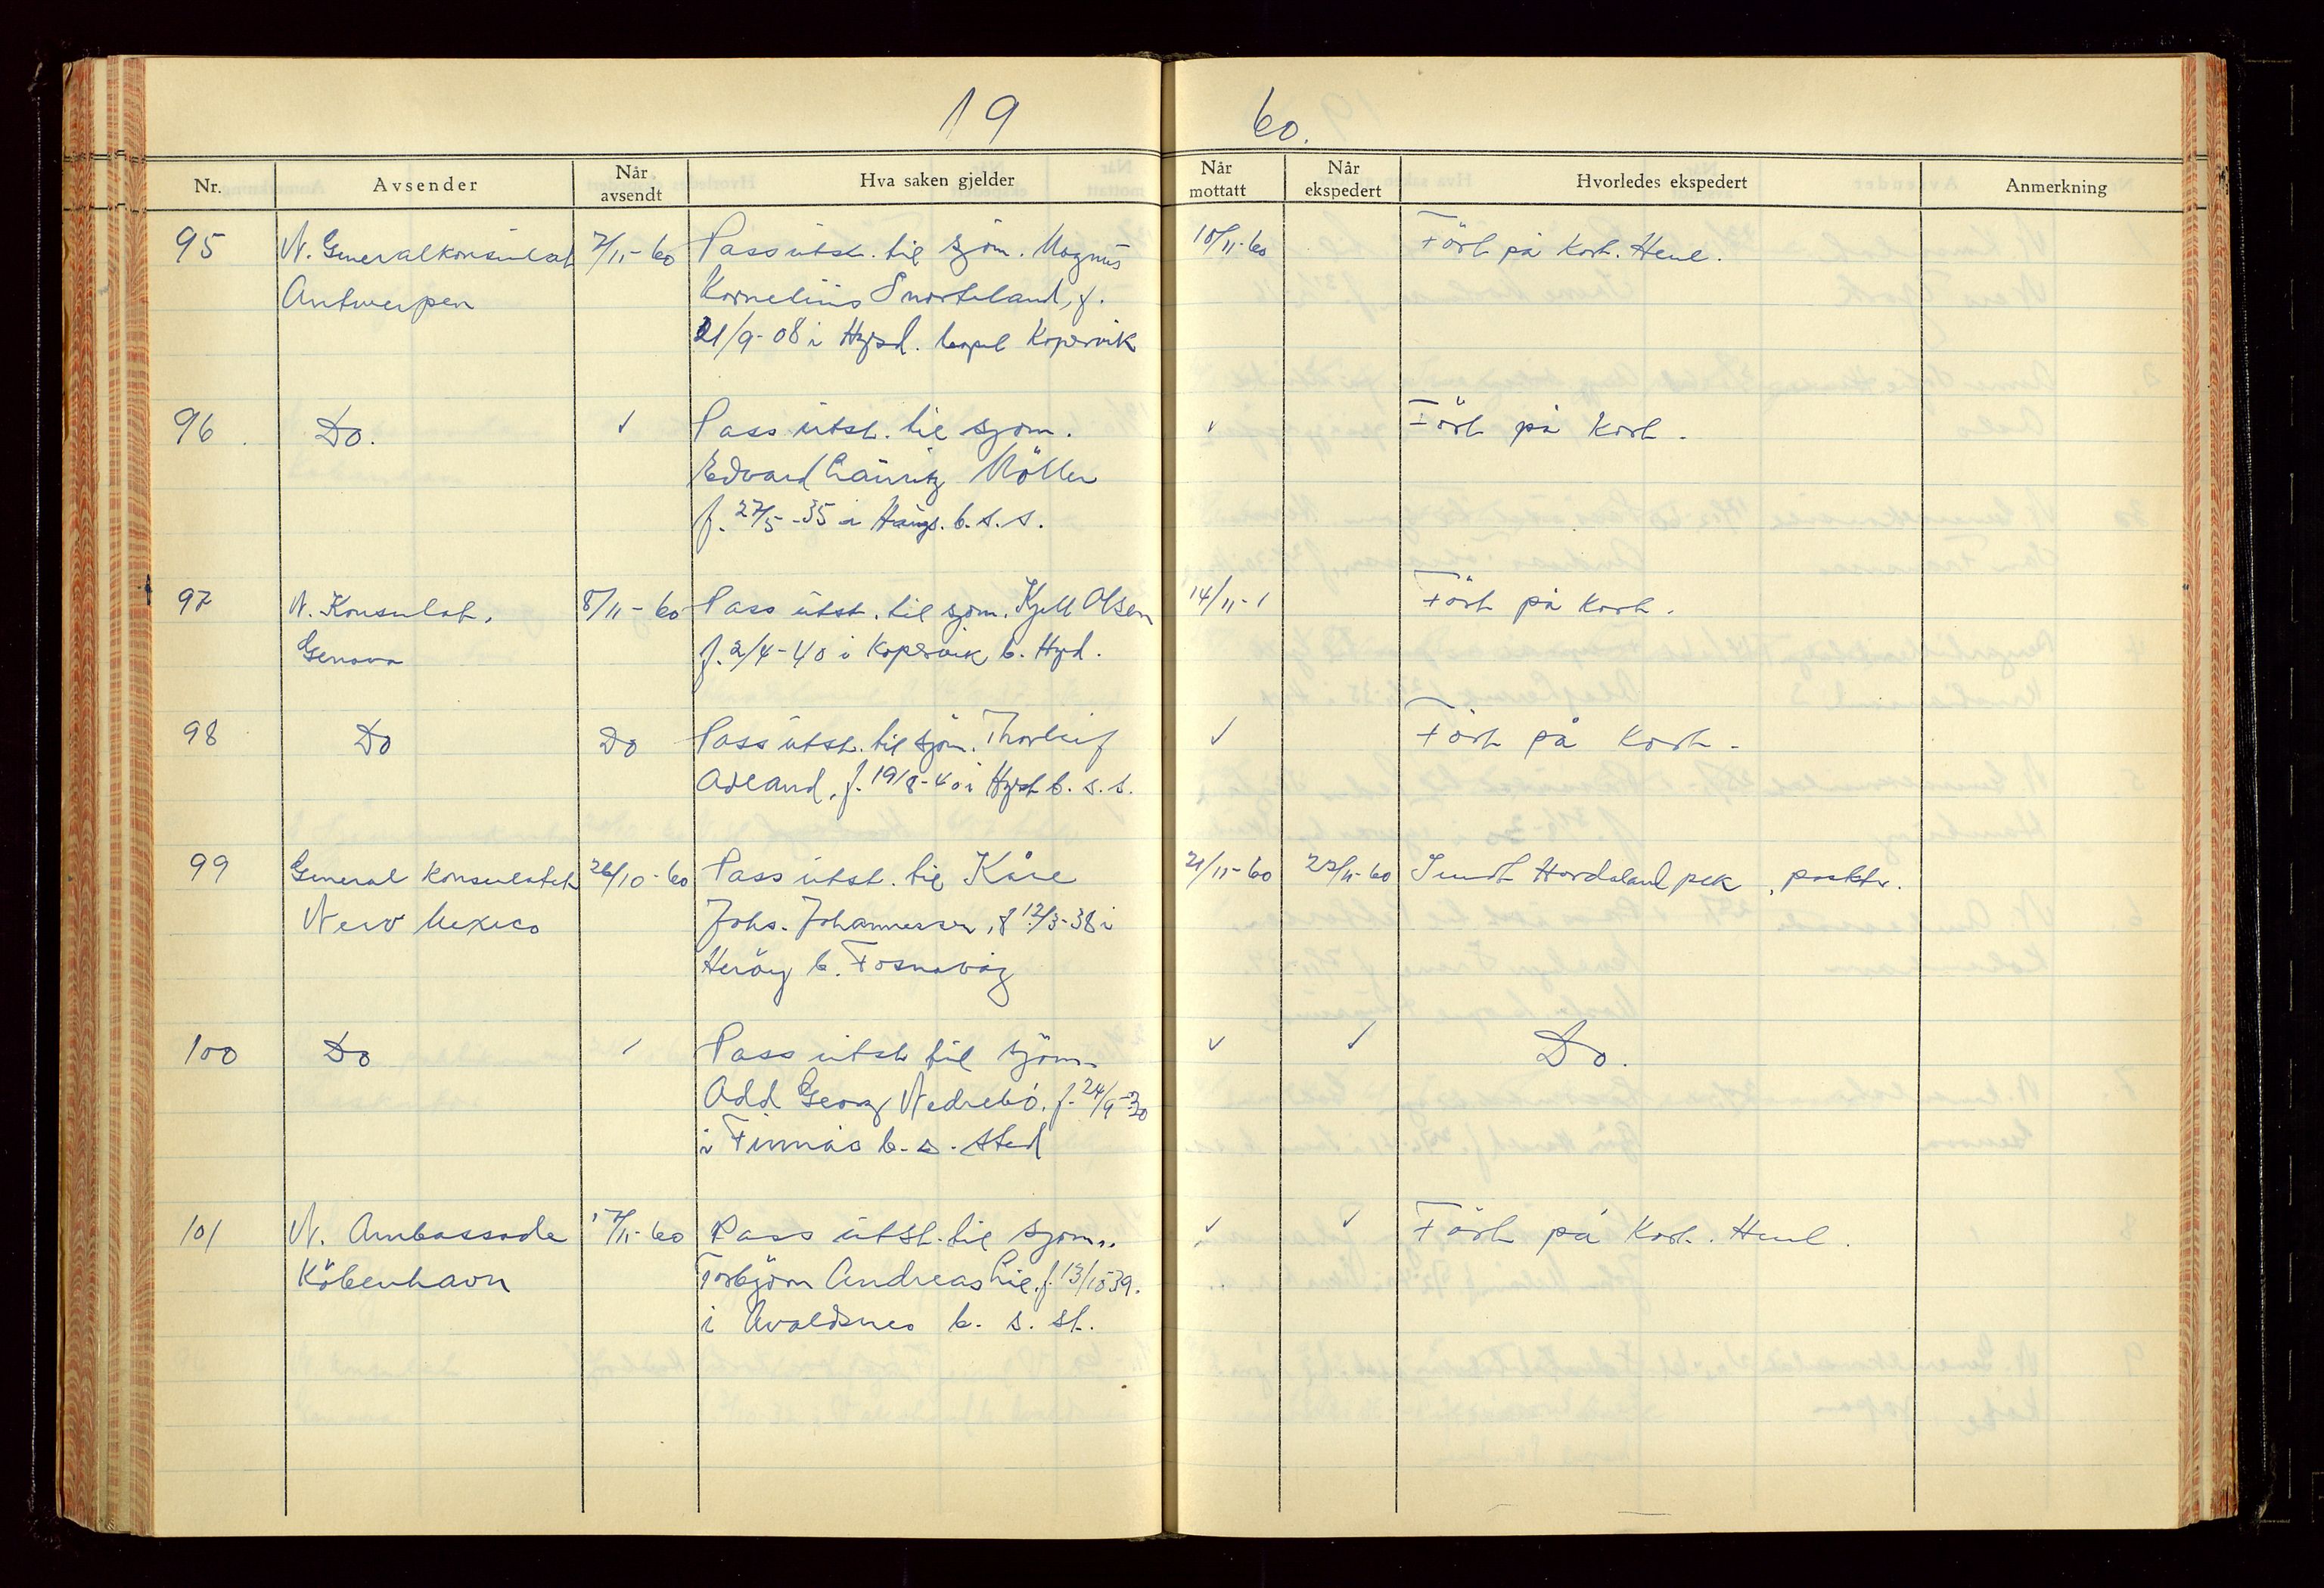 19 60.
Nr. Avsender Når avsendt Hva saken gjelder Når mottatt Når ekspedert Hvorledes ekspedert Anmerkning
95 N. Generalkonsulat 7/11-60 Pass utst. til sjøm. Magnus 10/11-60 Fört på kort. Henl.
Antwerpen Kornelius Snorteland, f.
21/9-08 i Hgsd. bopel Kopervik
96 Do. ✓ Pass utst. til sjøm. ✓ Fört på kort.
Edvard Lauritz Möller
f. 27/5-35 i Haugs. b. s. s.
97 N. Konsulat, 8/11-60 Pass utst. til sjøm. Kjell Olsen 14/11-1 Fört på kort.
Genova f. 2/4-40 i Kopervik b. Hgd.
98 Do Do Pass utst. til sjøm. Thorleif ✓ Fört på kort.
Adland, f. 19/8-40 i b. s. s.
99 General konsulatet 26/10-60 Pass utst. til Kåre 21/11-60 22/11-60 Sendt Hordaland pkk, postktr.
New Mexico Johs. Johannessen, f 12/3-38 i
Heröy b. Fosnavåg
100 Do ✓ Pass utst til sjöm. ✓ ✓ Do.
Odd Georg Nedrebö. f. 24/9-30
i Finnås b. s. sted
101 N. Ambassade 17/11-60 Pass utst. til sjøm. ✓ ✓ Fört på kort. Henl.
Köbenhavn Torbjörn Andreas Lie, f. 13/10 39.
i Avaldsnes b. s. st.